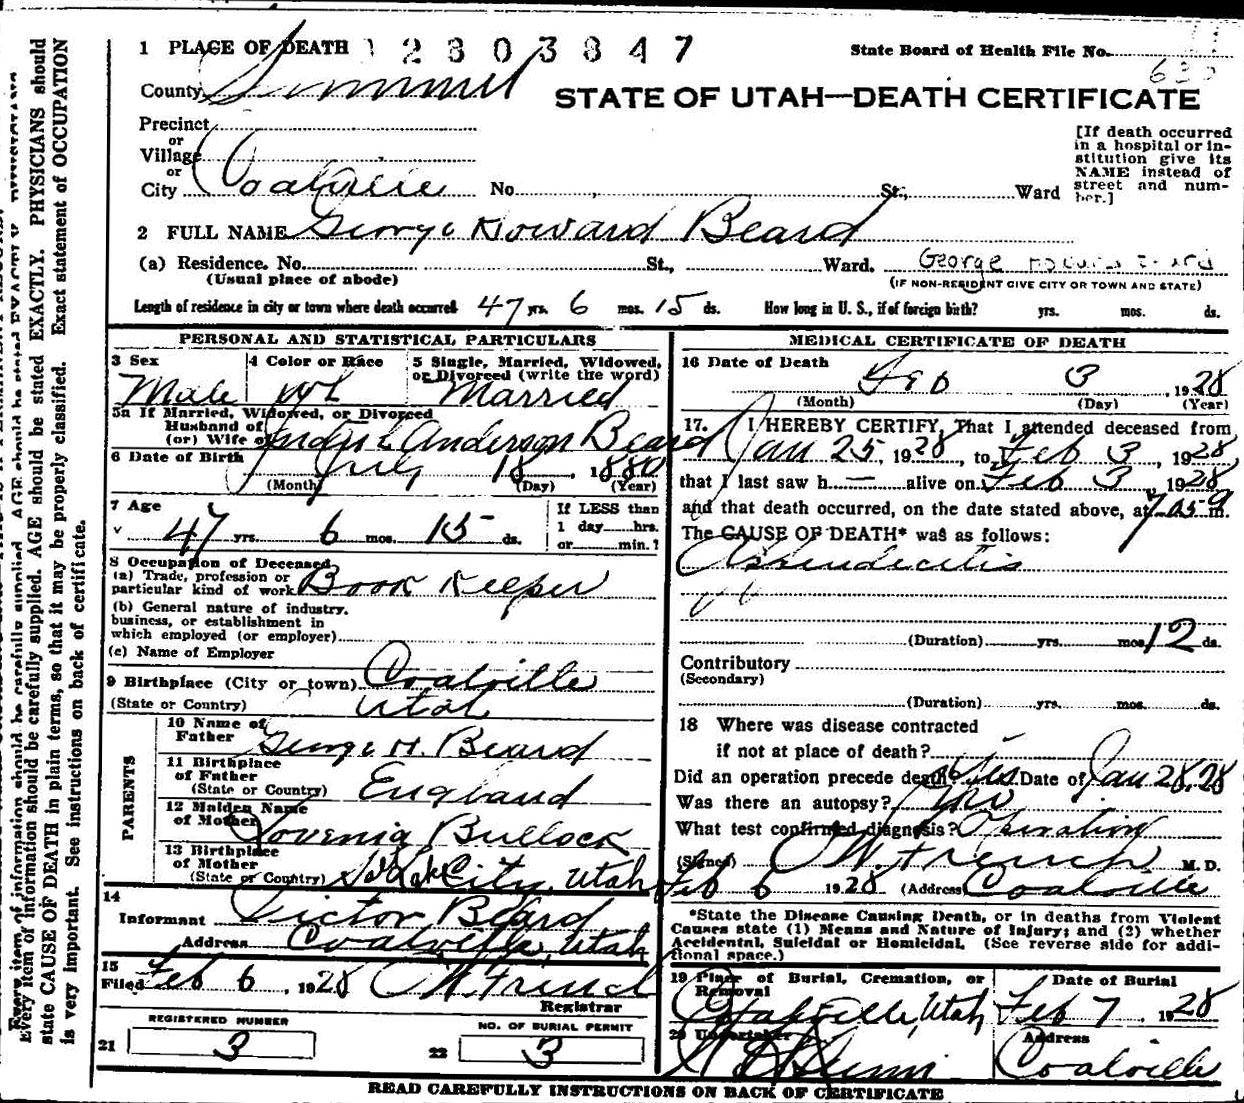 1 PLACE OF DEATH 12803847 State Board of Health File No.
County Summit
STATE OF UTAH—DEATH CERTIFICATE
Precinct
or
Village
or
City Coalville No. St., Ward
[If death occurred in a hospital or institution give its NAME instead of street and number.]
2 FULL NAME George Howard Beard
(a) Residence. No. St., Ward. George
(Usual place of abode) (IF NON-RESIDENT GIVE CITY OR TOWN AND STATE)
Length of residence in city or town where death occurred 47 yrs. 6 mos. 15 ds. How long in U. S., if of foreign birth? yrs. mos. ds.
PERSONAL AND STATISTICAL PARTICULARS
3 Sex 4 Color or Race 5 Single, Married, Widowed, or Divorced (write the word)
Male Wh Married
5a If Married, Widowed, or Divorced
Husband of
(or) Wife of Anderson Beard
6 Date of Birth July 18, 1880
(Month) (Day) (Year)
7 Age If LESS than
47 yrs. 6 mos. 15 ds. 1 day hrs.
or min.?
8 Occupation of Deceased
(a) Trade, profession or particular kind of work Book Keeper
(b) General nature of industry, business, or establishment in which employed (or employer)
(c) Name of Employer
9 Birthplace (City or town) Coalville
(State or Country) Utah
PARENTS
10 Name of Father George H. Beard
11 Birthplace of Father (State or Country) England
12 Maiden Name of Mother Lovenia Bullock
13 Birthplace of Mother (State or Country) Salt Lake City, Utah
14
Informant Victor Beard
Address Coalville, Utah
15
Filed Feb 6, 1928
Registrar
REGISTERED NUMBER NO. OF BURIAL PERMIT
21 3 22 3
MEDICAL CERTIFICATE OF DEATH
16 Date of Death Feb 3, 1928
(Month) (Day) (Year)
17. I HEREBY CERTIFY, That I attended deceased from
Jan 25, 1928, to Feb 3, 1928
that I last saw h— alive on Feb 3, 1928
and that death occurred, on the date stated above, at m.
The CAUSE OF DEATH* was as follows:
Appendicitis
(Duration) yrs. mos. 12 ds.
Contributory
(Secondary)
(Duration) yrs. mos. ds.
18 Where was disease contracted
if not at place of death?
Did an operation precede death? Yes Date of Jan 28, 28
Was there an autopsy? No
What test confirmed diagnosis? Operation
(Signed) French M. D.
Feb 6 1928 (Address) Coalville
*State the Disease Causing Death, or in deaths from Violent
Causes state (1) Means and Nature of Injury; and (2) whether
Accidental, Suicidal or Homicidal. (See reverse side for additional space.)
19 Place of Burial, Cremation, or Removal Date of Burial
Coalville, Utah Feb 7, 1928
20 Undertaker Address
Coalville
READ CAREFULLY INSTRUCTIONS ON BACK OF CERTIFICATE
Every item of information should be carefully supplied. AGE should be stated EXACTLY. PHYSICIANS should
state CAUSE OF DEATH in plain terms, so that it may be properly classified. Exact statement of OCCUPATION
is very important. See instructions on back of certificate.